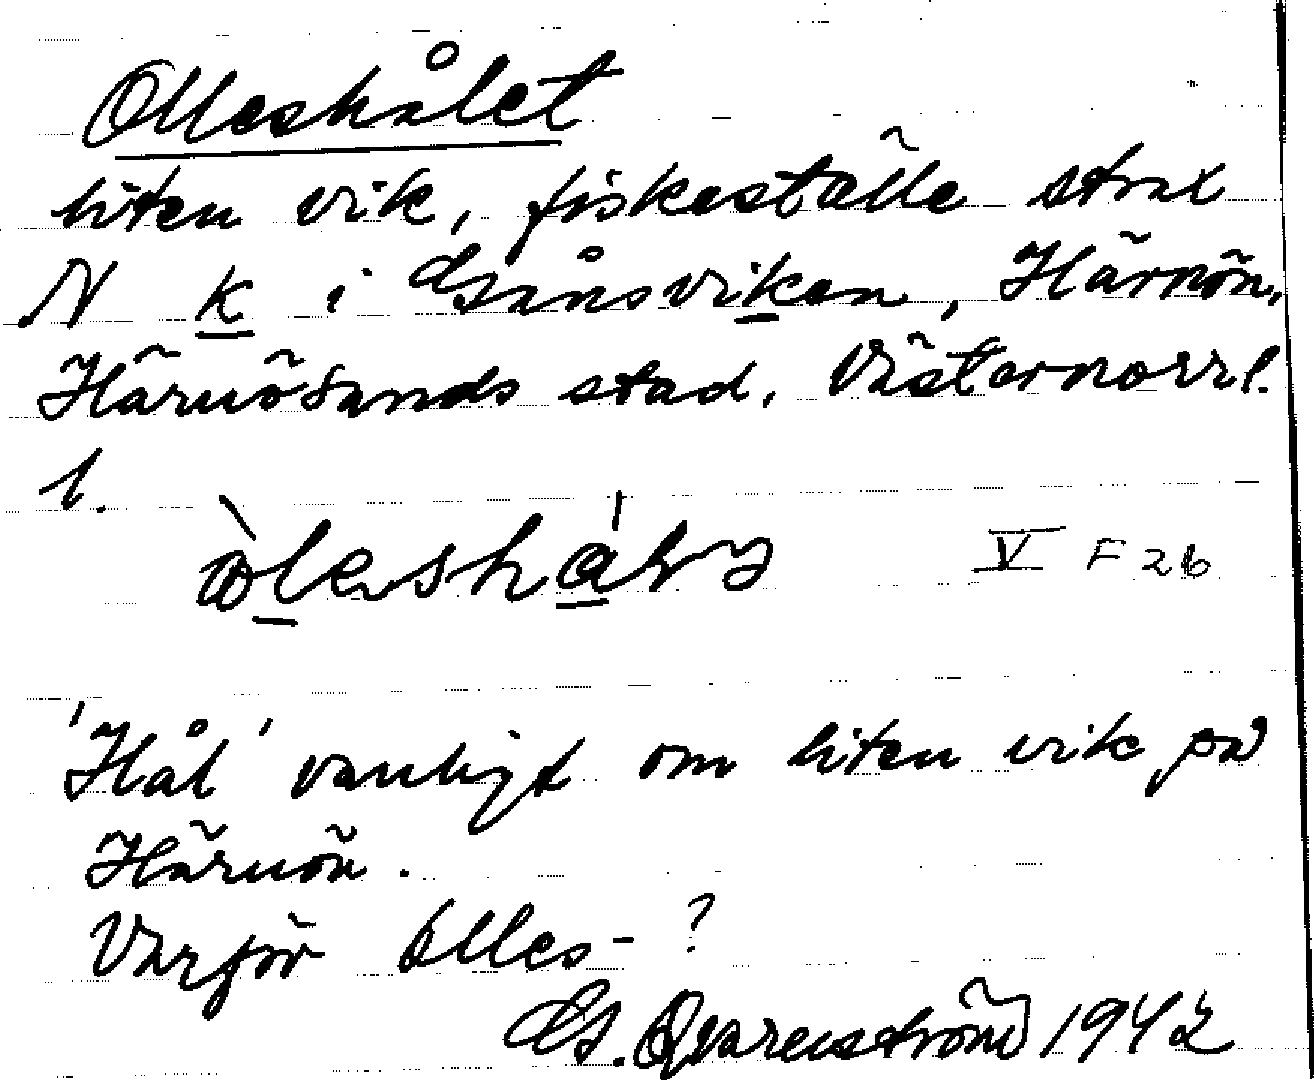 Olleshålet
liten vik, fiskeställe strax
N k i Gånsviken, Härnön,
Härnösands stad, Västernorrl.
l.
V F 26
'Hål' vanligt om liten vik på
Härnön.
Varför Olles- ?
G. Qvarnström 1942